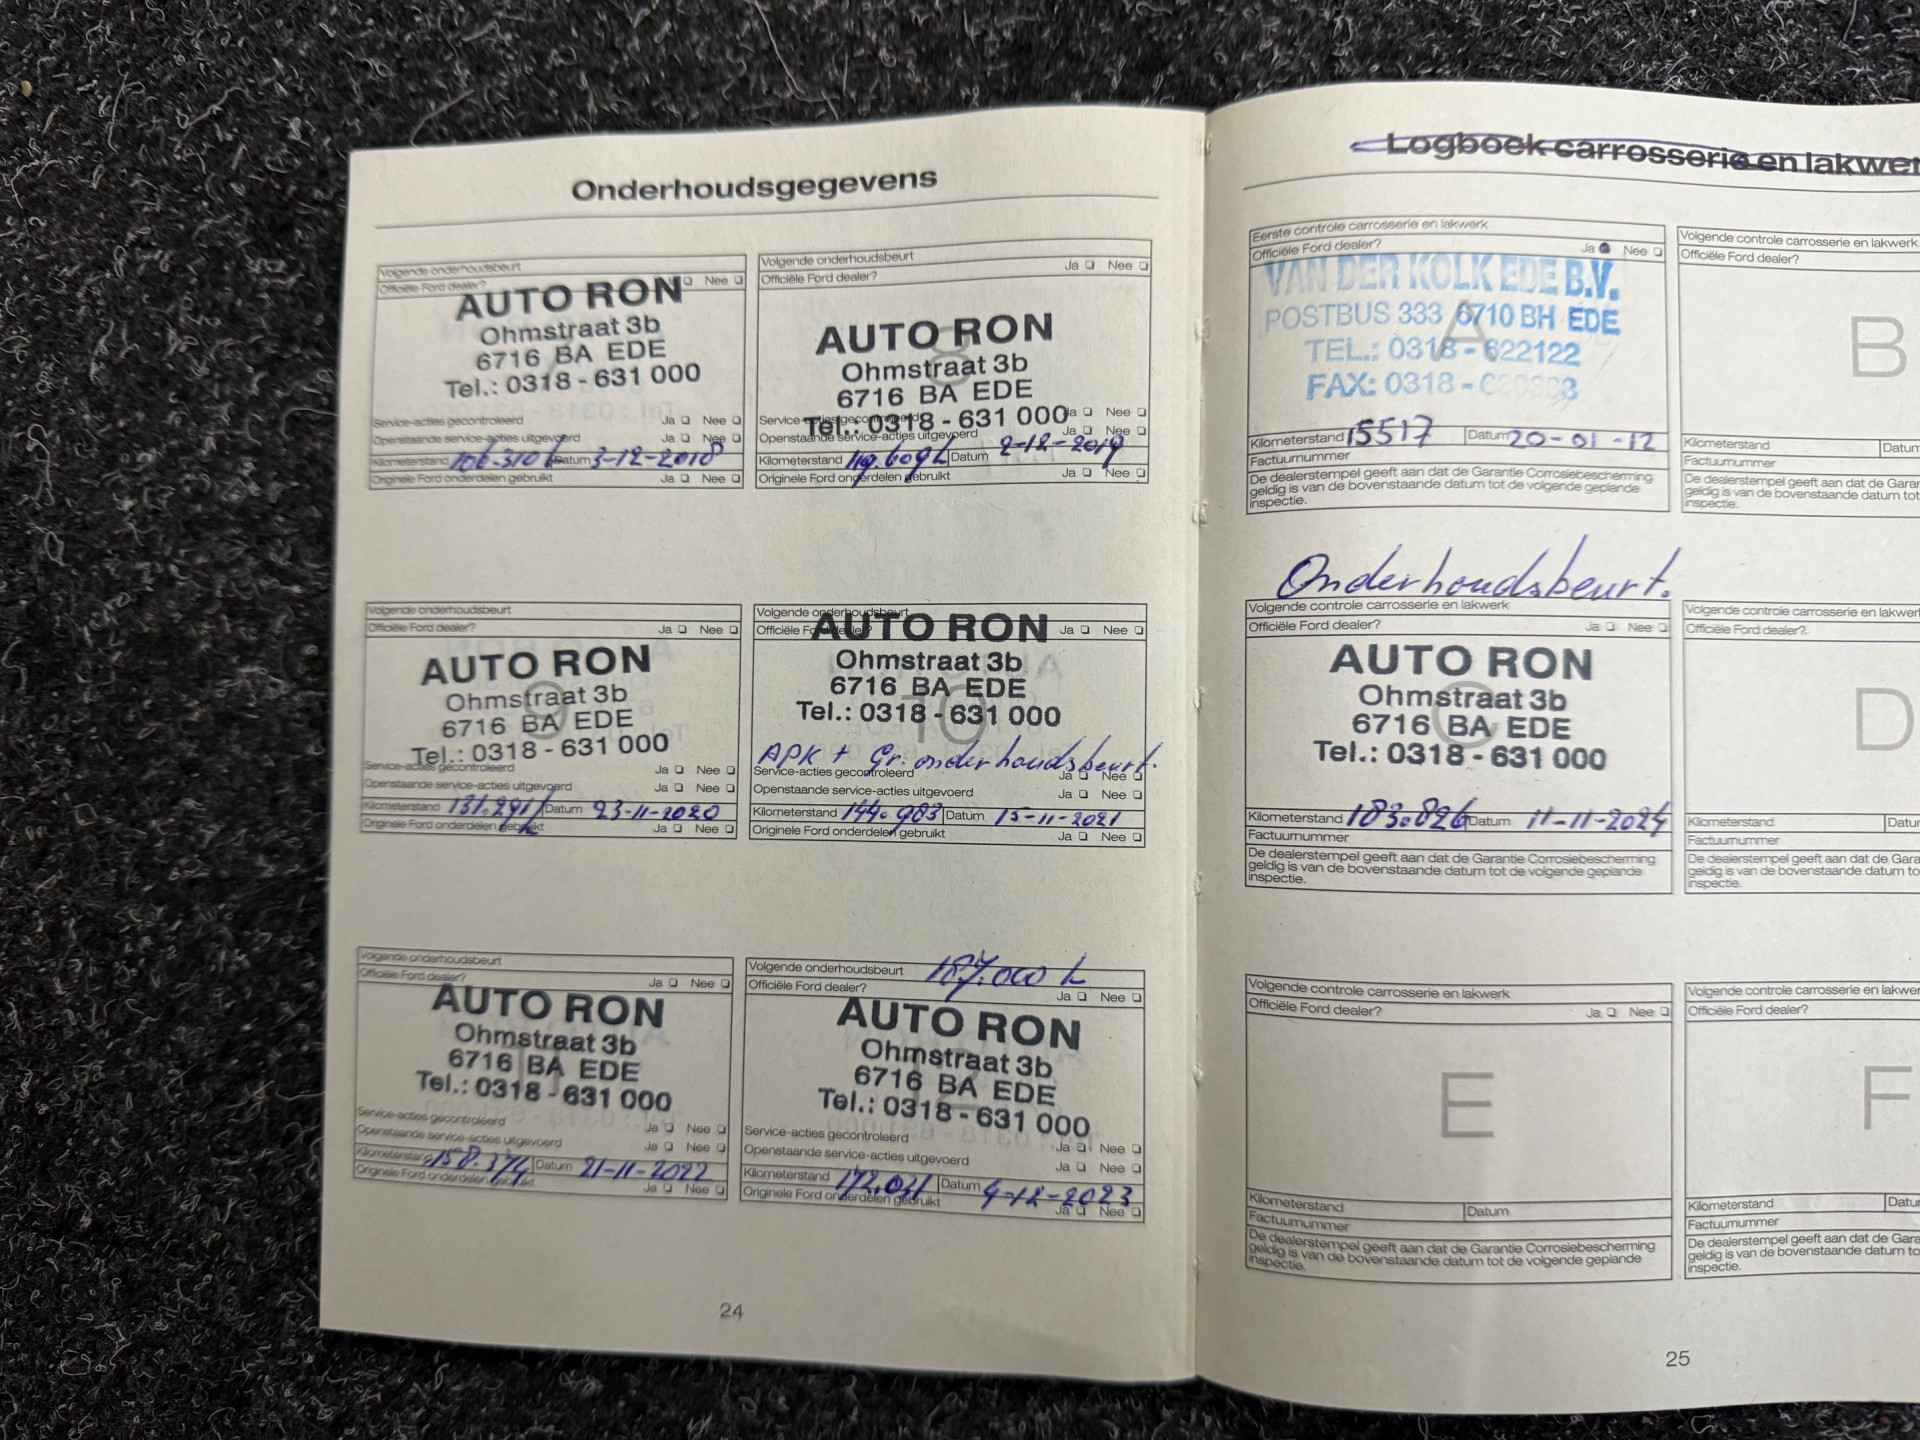 Onderhoudsgegevens
Volgende onderhoudsbeurt
Officiële Ford dealer? Nee
AUTO RON
Ohmstraat 3b
6716 BA EDE
Tel.: 0318 - 631 000
Service-acties gecontroleerd Ja Nee
Openstaande service-acties uitgevoerd Ja Nee
Kilometerstand 106.310 Datum 3-12-2018
Originele Ford onderdelen gebruikt Ja Nee
Volgende onderhoudsbeurt
Officiële Ford dealer? Ja Nee
8
AUTO RON
Ohmstraat 3b
6716 BA EDE
Tel.: 0318 - 631 000
Service-acties gecontroleerd Ja Nee
Openstaande service-acties uitgevoerd Ja Nee
Kilometerstand 119.609 Datum 2-12-2019
Originele Ford onderdelen gebruikt Ja Nee
Volgende onderhoudsbeurt
Officiële Ford dealer? Ja Nee
9
AUTO RON
Ohmstraat 3b
6716 BA EDE
Tel.: 0318 - 631 000
Service-acties gecontroleerd Ja Nee
Openstaande service-acties uitgevoerd Ja Nee
Kilometerstand 131.291 Datum 23-11-2020
Originele Ford onderdelen gebruikt Ja Nee
Volgende onderhoudsbeurt
Officiële Ford dealer? Ja Nee
10
AUTO RON
Ohmstraat 3b
6716 BA EDE
Tel.: 0318 - 631 000
APK + Gr. onderhoudsbeurt.
Service-acties gecontroleerd Ja Nee
Openstaande service-acties uitgevoerd Ja Nee
Kilometerstand 144.983 Datum 15-11-2021
Originele Ford onderdelen gebruikt Ja Nee
Volgende onderhoudsbeurt
Officiële Ford dealer? Ja Nee
AUTO RON
Ohmstraat 3b
6716 BA EDE
Tel.: 0318 - 631 000
Service-acties gecontroleerd Ja Nee
Openstaande service-acties uitgevoerd Ja Nee
Kilometerstand 158.374 Datum 21-11-2022
Originele Ford onderdelen gebruikt Ja Nee
Volgende onderhoudsbeurt 187.000
Officiële Ford dealer? Ja Nee
AUTO RON
Ohmstraat 3b
6716 BA EDE
Tel.: 0318 - 631 000
Service-acties gecontroleerd Ja Nee
Openstaande service-acties uitgevoerd Ja Nee
Kilometerstand 172.011 Datum 4-12-2023
Originele Ford onderdelen gebruikt Ja Nee
24
Logboek carrosserie en lakwer
Eerste controle carrosserie en lakwerk
Officiële Ford dealer? Ja Nee
A
VAN DER KOLK EDE B.V.
POSTBUS 333 6710 BH EDE
TEL.: 0318 - 622122
FAX: 0318 -
Kilometerstand 15517 Datum 20-01-12
Factuurnummer
De dealerstempel geeft aan dat de Garantie Corrosiebescherming
geldig is van de bovenstaande datum tot de volgende geplande
inspectie.
Volgende controle carrosserie en lakwerk
Officiële Ford dealer?
B
Kilometerstand Datum
Factuurnummer
De dealerstempel geeft aan dat de Gara
geldig is van de bovenstaande datum tot
inspectie.
Onderhoudsbeurt.
Volgende controle carrosserie en lakwerk
Officiële Ford dealer? Ja Nee
C
AUTO RON
Ohmstraat 3b
6716 BA EDE
Tel.: 0318 - 631 000
Kilometerstand 183.826 Datum 11-11-2024
Factuurnummer
De dealerstempel geeft aan dat de Garantie Corrosiebescherming
geldig is van de bovenstaande datum tot de volgende geplande
inspectie.
Volgende controle carrosserie en lakwerk
Officiële Ford dealer?
D
Kilometerstand Datum
Factuurnummer
De dealerstempel geeft aan dat de Gara
geldig is van de bovenstaande datum to
inspectie.
Volgende controle carrosserie en lakwerk
Officiële Ford dealer? Ja Nee
E
Kilometerstand Datum
Factuurnummer
De dealerstempel geeft aan dat de Garantie Corrosiebescherming
geldig is van de bovenstaande datum tot de volgende geplande
inspectie.
Volgende controle carrosserie en lakwer
Officiële Ford dealer?
F
Kilometerstand Datu
Factuurnummer
De dealerstempel geeft aan dat de Gara
geldig is van de bovenstaande datum to
inspectie.
25